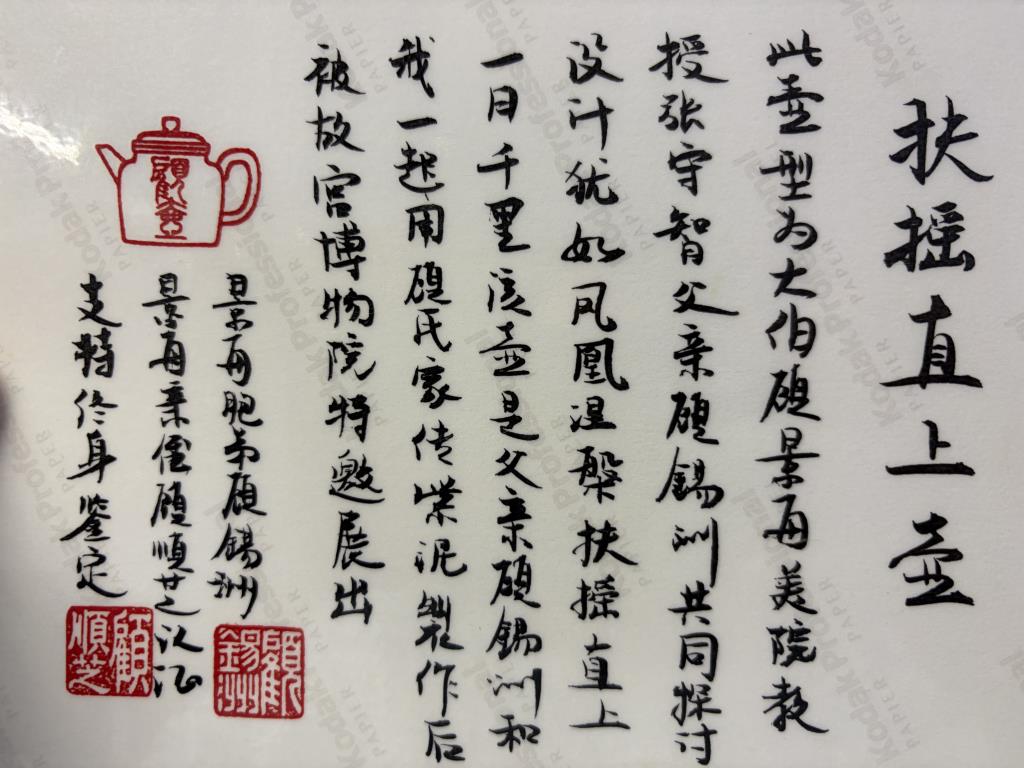 扶摇直上壶
此壶型为大伯顾景舟美院教
授张守智父亲顾锡洲共同探讨
设计犹如凤凰涅槃扶摇直上
一日千里该壶是父亲顾锡洲和
我一起用顾氏家传紫泥製作后
被故宫博物院特邀展出
顧壶
景舟胞弟顾锡洲
景舟亲侄顾順芝认证
支持终身鉴定
顧錫洲
顧順芝
Kodak Professional
PAPIER